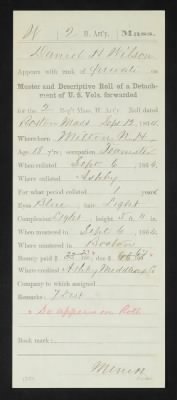 W 2 H. Art'y. Mass.
Daniel H Wilson
Appears with rank of private on
Muster and Descriptive Roll of a Detach-
ment of U. S. Vols. forwarded
for the 2 Reg't Mass. H. Art'y. Roll dated
Mass Sept 12, 1864.
Where born Milton N.H.
Age 18 y'rs; occupation Teamster
When enlisted Sept 6, 1864.
Where enlisted Ashby
For what period enlisted 1 years
Eyes Blue; hair Light
Complexion Light; height 5 ft. in.
When mustered in Sept 6, 1864.
Where mustered in Boston
Bounty paid $ 33; due $
Where credited Ashby
Company to which assigned
Remarks:
x So appears on Roll
Book mark: